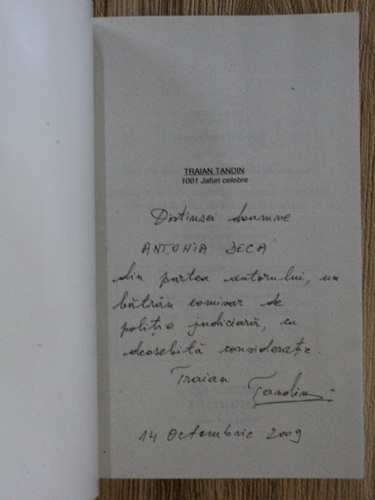 TRAIAN TANDIN
1001 Jafuri celebre
Distinsei doamne
ANTONIA DECA
din partea autorului, un
bătrân comisar de
poliție judiciară, cu
deosebită considerație.
Traian Tandin
14 Octombrie 2009